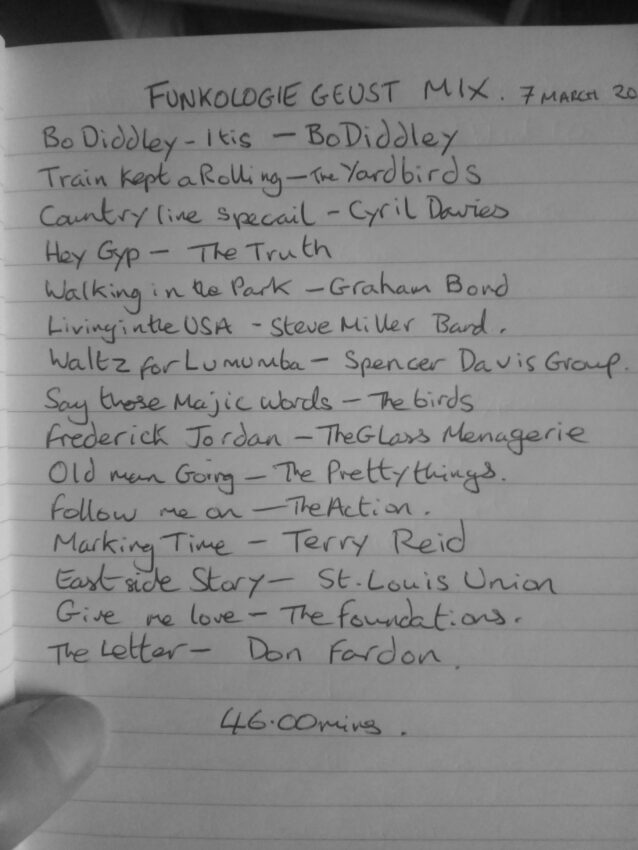 FUNKOLOGIE GEUST MIX. 7 MARCH 20
Bo Diddley - Itis - BoDiddley
Train kept a Rolling - The Yardbirds
Country line specail - Cyril Davies
Hey Gyp - The Truth
Walking in the Park - Graham Bond
Living in the USA - Steve Miller Band.
Waltz for Lumumba - Spencer Davis Group.
Say those Majic words - The birds
Frederick Jordan - The Glass Menagerie
Old man Going - The Pretty things.
Follow me on - The Action.
Marking Time - Terry Reid
East side Story - St. Louis Union
Give me love - The foundations.
The Letter - Don Fardon.
46.00 mins.